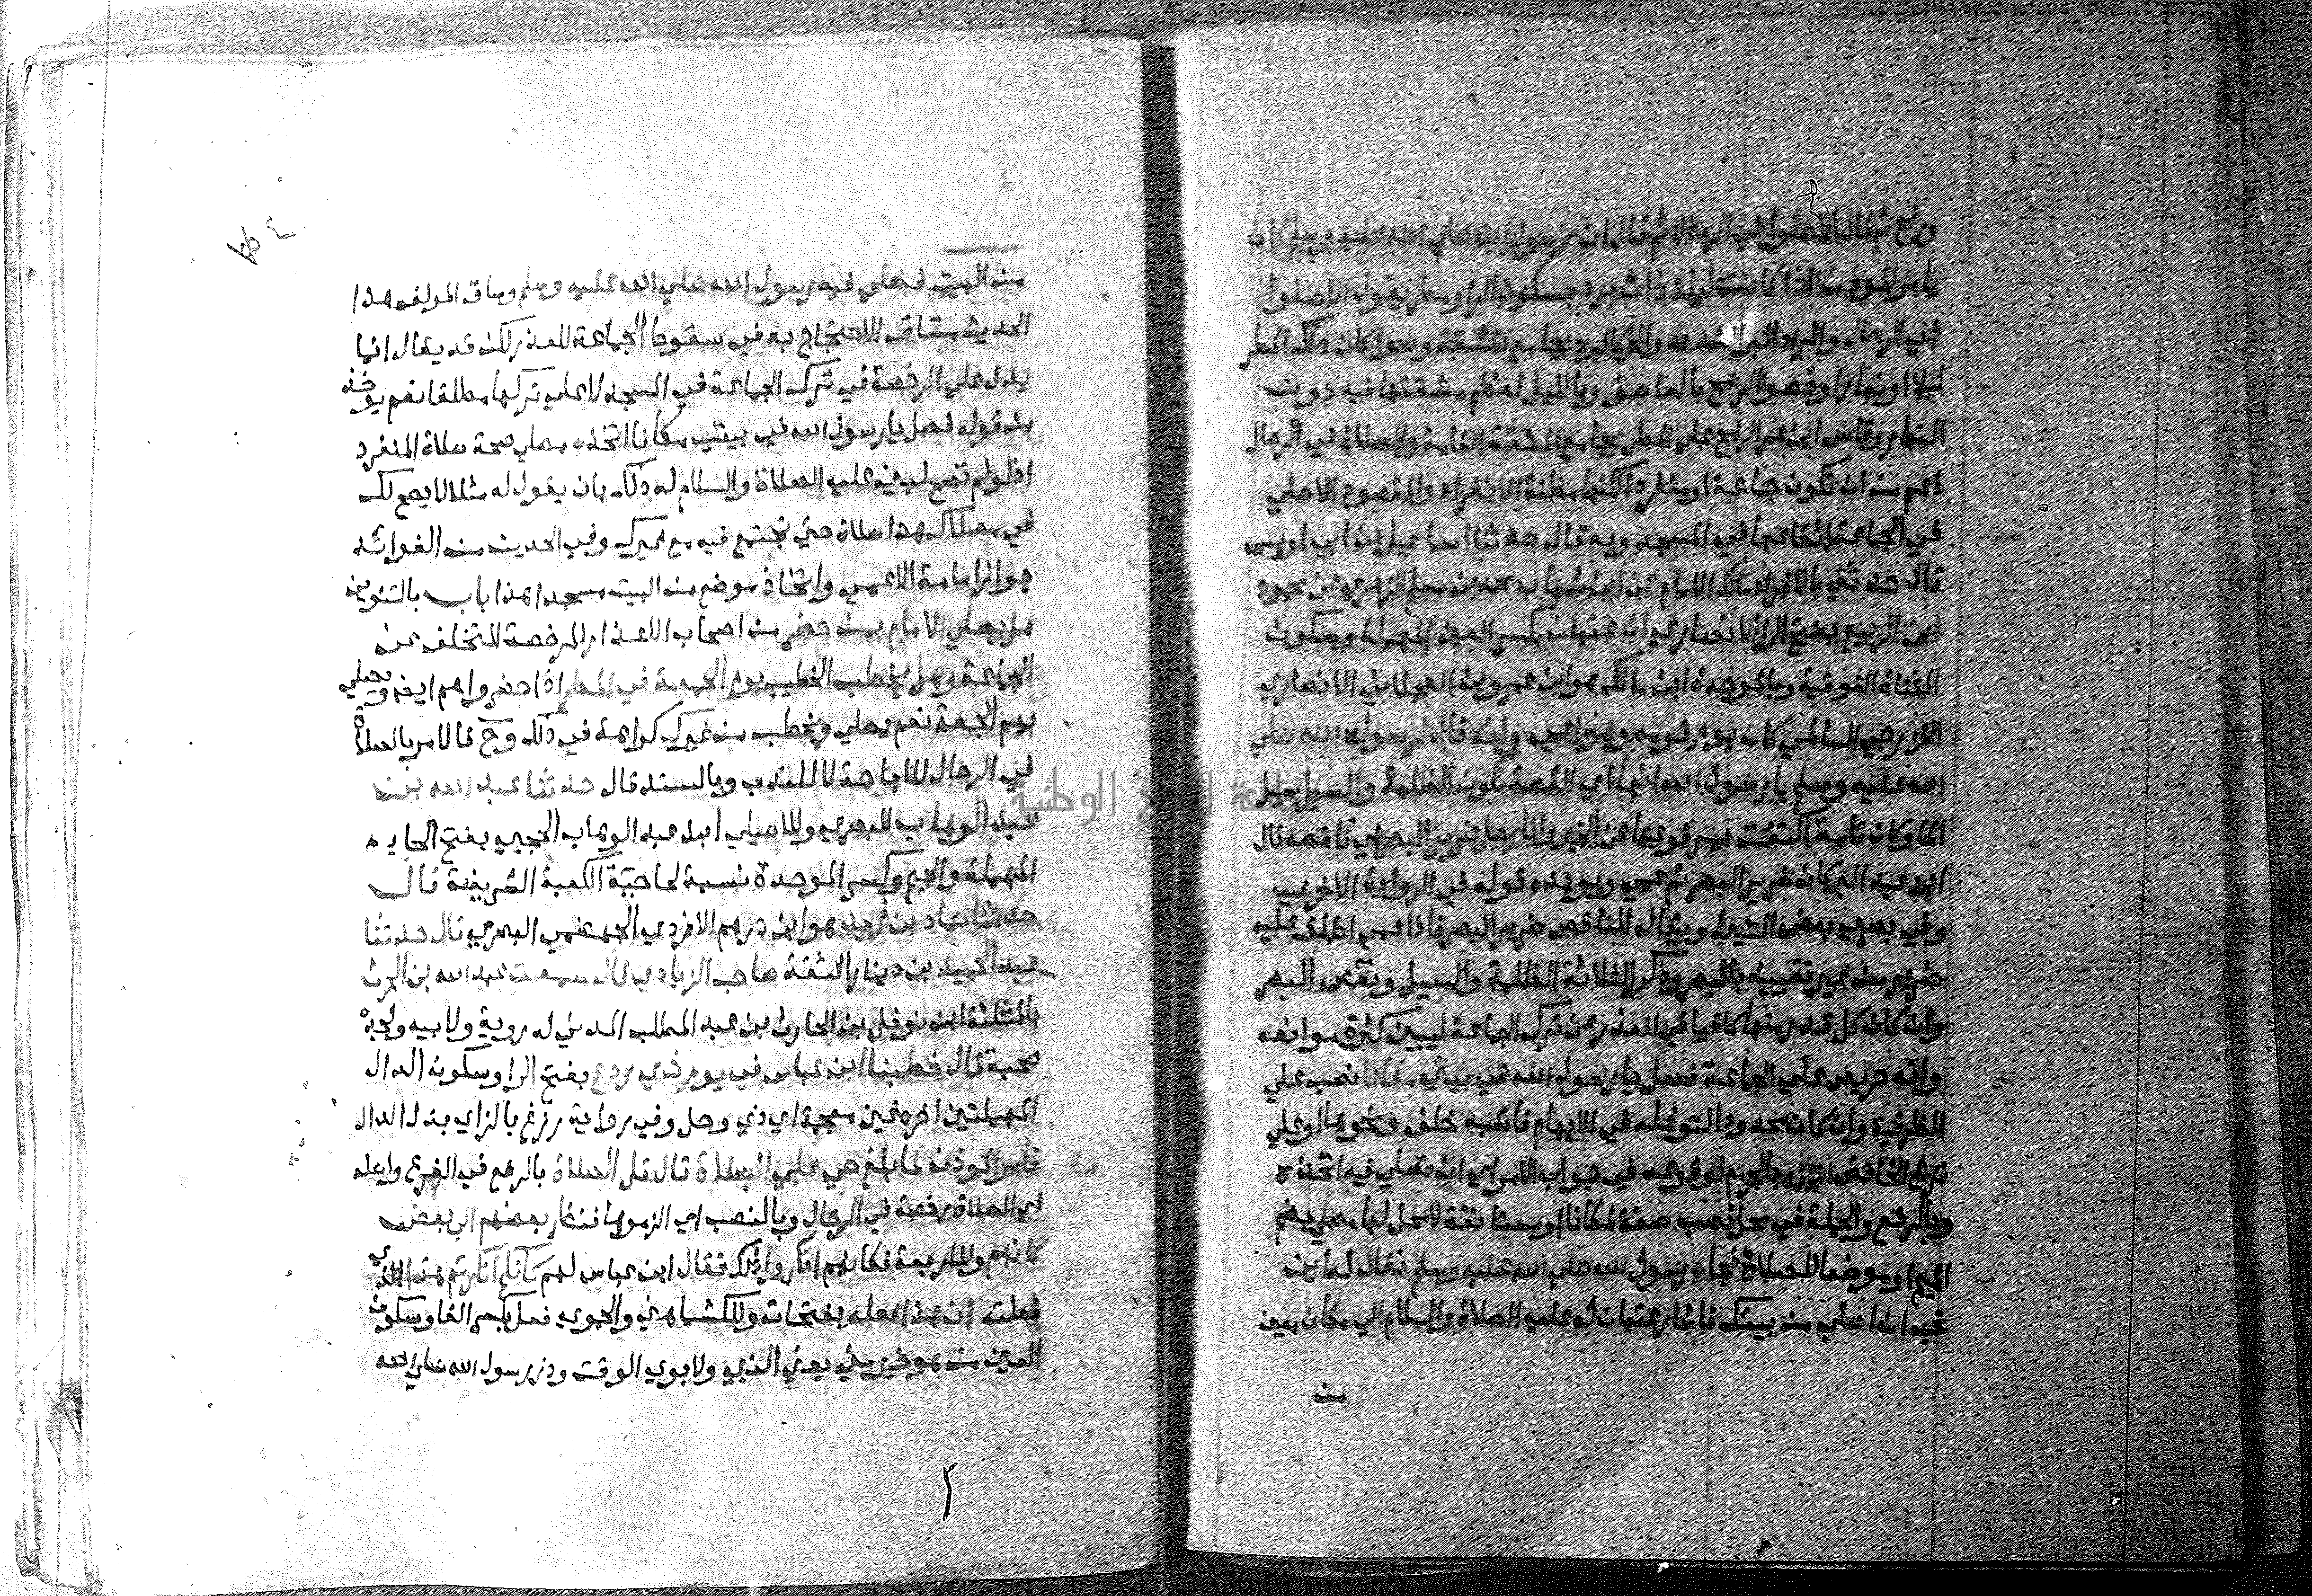 وريح ثم قال الا صلوا في الرحال ثم قال ان رسول الله صلي الله عليه وسلم كان
يامر الموذن اذا كانت ليلة ذات برد بسكون الرا ومطر يقول الا صلوا
في الرحال والبرد الشديد والحر كالبرد بجامع المشقة وسوا كان ذلك المطر
ليلا او نهارا وخصوا الريح بالعاصف وبالليل لعظم مشقتها فيه دون
النهار وقاس ابن عمر الريح علي المطر بجامع المشقة العامة والصلاة في الرحال
اعم من ان تكون جماعة او منفردا لكنها مظنة الانفراد والمقصود الاصلي
في الجماعة ايقاعها في المسجد وبه قال حدثنا اسماعيل بن ابي اويس
قال حدثني بالافراد مالك الامام عن ابن شهاب محمد بن مسلم الزهري عن محمود
ابن الربيع بفتح الرا الانصاري ان عتبان بكسر العين المهملة وسكون
المثناة الفوقية وبالموحدة ابن مالك هو ابن عمرو بن العجلاني الانصاري
الخزرجي السالمي كان يوم قومه وهو اعمي وانه قال لرسول الله صلي
الله عليه وسلم يا رسول الله انها اي القصة تكون الظلمة والسيل سيل
الما وكان تامة اكتفت بمرفوعها عن الخبر وانا رجل ضرير البصر اي ناقصه قال
ابن عبد البر كان ضرير البصر ثم عمي ويويده قوله في الرواية الاخري
وفي بصري بعض الشيء ويقال للناقص ضرير البصر فاذا عمي اطلق عليه
ضرير من غير تقييد بالبصر وذكر الثلاثة الظلمة والسيل ونقص البصر
وان كان كل فرد منها كافيا في العذر عن ترك الجماعة ليبين كثرة موانعه
وانه حريص علي الجماعة فصل يا رسول الله في بيتي مكانا نصب علي
الظرفية وان كان محدودا لتوغله في الابهام فاشبه خلف ونحوها او علي
نزع الخافض اتخذه بالجزم لوقوعه في جواب الامر اي ان تصلي فيه اتخذه
وبالرفع والجملة في محل نصب صفة لمكانا او مستانفة لا محل لها مصلي بضم
الميم اي موضعا للصلاة فجاه رسول الله صلي الله عليه وسلم فقال له اين
تحب ان اصلي من بيتك فاشار عتبان له عليه الصلاة والسلام الي مكان معين
من
من البيت فصلي فيه رسول الله صلي الله عليه وسلم وساق المولف هذا
الحديث مساق الاحتجاج به في سقوط الجماعة للعذر لكن قد يقال انما
يدل علي الرخصة في ترك الجماعة في المسجد لا علي تركها مطلقا نعم يوخذ
من قوله فصل يا رسول الله في بيتي مكانا اتخذه مصلي صحة صلاة المنفرد
اذ لو لم تصح لبين عليه الصلاة والسلام له ذلك بان يقول له مثلا لا يصح لك
في مصلاك هذا صلاة حتي تجتمع فيه مع غيرك وفي الحديث من الفوائد
جواز امامة الاعمي واتخاذ موضع من البيت مسجدا هذا باب بالتنوين
هل يصلي الامام بمن حضر من اصحاب الاعذار المرخصة للتخلف عن
الجماعة وهل يخطب الخطيب يوم الجمعة في المطر اذا حضروا هم ايضا ويصلي
بهم الجمعة نعم يصلي ويخطب من غير كراهة في ذلك وح فالامر بالصلاة
في الرحال للاباحة لا للندب وبالسند قال حدثنا عبد الله بن
عبد الوهاب البصري وللاصيلي ابن عبد الوهاب الحجبي بفتح الحاء
المهملة والجيم وكسر الموحدة نسبة لحاجبة الكعبة الشريفة قال
حدثنا حماد بن زيد هو ابن درهم الازدي الجهضمي البصري قال حدثنا
عبد الحميد بن دينار الثقة صاحب الزيادي قال سمعت عبد الله بن الحرث
بالمثلثة ابن نوفل بن الحارث بن عبد المطلب المدني له روية ولابيه ولجده
صحبة قال خطبنا ابن عباس في يوم ذي ردغ بفتح الرا وسكون الدال
المهملتين اخره غين معجمة اي ذي وحل وفي رواية رزغ بالزاي بدل الدال
فامر الموذن لما بلغ حي علي الصلاة قال قل الصلاة بالرفع في الفرع واصله
اي الصلاة رخصة في الرحال وبالنصب اي الزموها فنظر بعضهم الي بعض
كانهم وللاربعة فكانهم انكروا ذلك فقال ابن عباس لهم كانكم انكرتم هذا الذي
فعلت ان هذا فعله بفتحات وللكشميهني والحموي فعل بكسر الفا وسكون
العين من هو خير مني يعني النبي ولابوي الوقت وذر رسول الله صلي الله